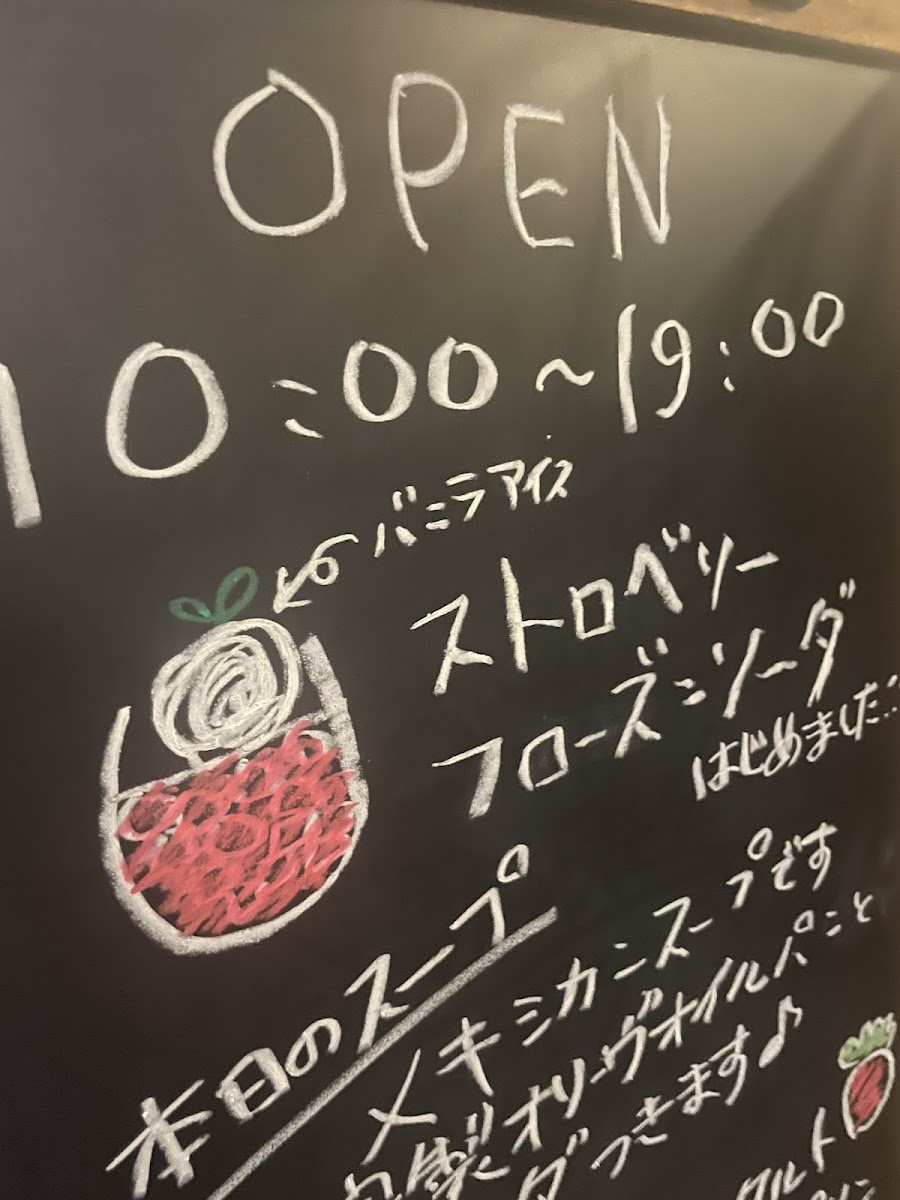 OPEN
10:00~19:00
バニラアイス
ストロベリー
フローズンソーダ
はじめました
本日のスープ
メキシカンスープです
製オリーヴオイルパンと
ダつきます♪
クルト